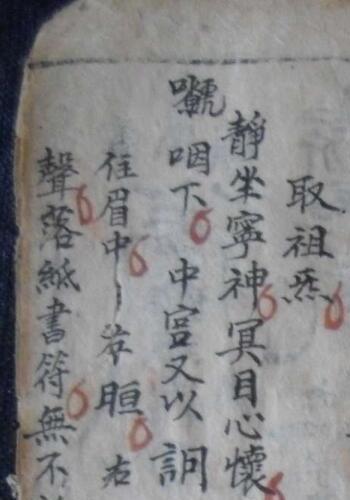 取祖炁
靜坐寧神冥目心懷
嚥下中宮又以
往眉中 右
聲落紙書符無不